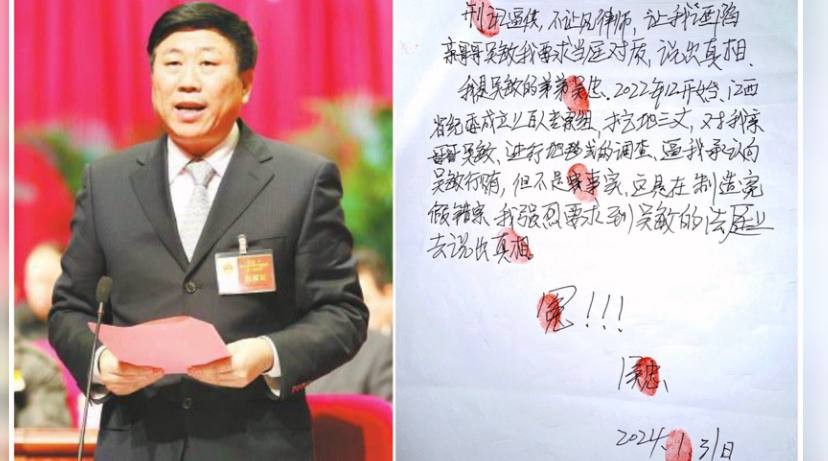 刑讯逼供,不让见律师,让我诬陷
亲哥哥吴敏我要求当庭对质,说出真相.
我是吴敏的弟弟吴忠.2022年12开始、江西
省纪委成立上百人专案组,挖地三丈,对我亲
哥哥吴敏、进行地毯式的调查、逼我承认向
吴敏行贿,但不是事实、这是在制造冤
假错案.我强烈要求到吴敏的法庭上
去说出真相.
冤!!!
吴忠
2024.1.31日